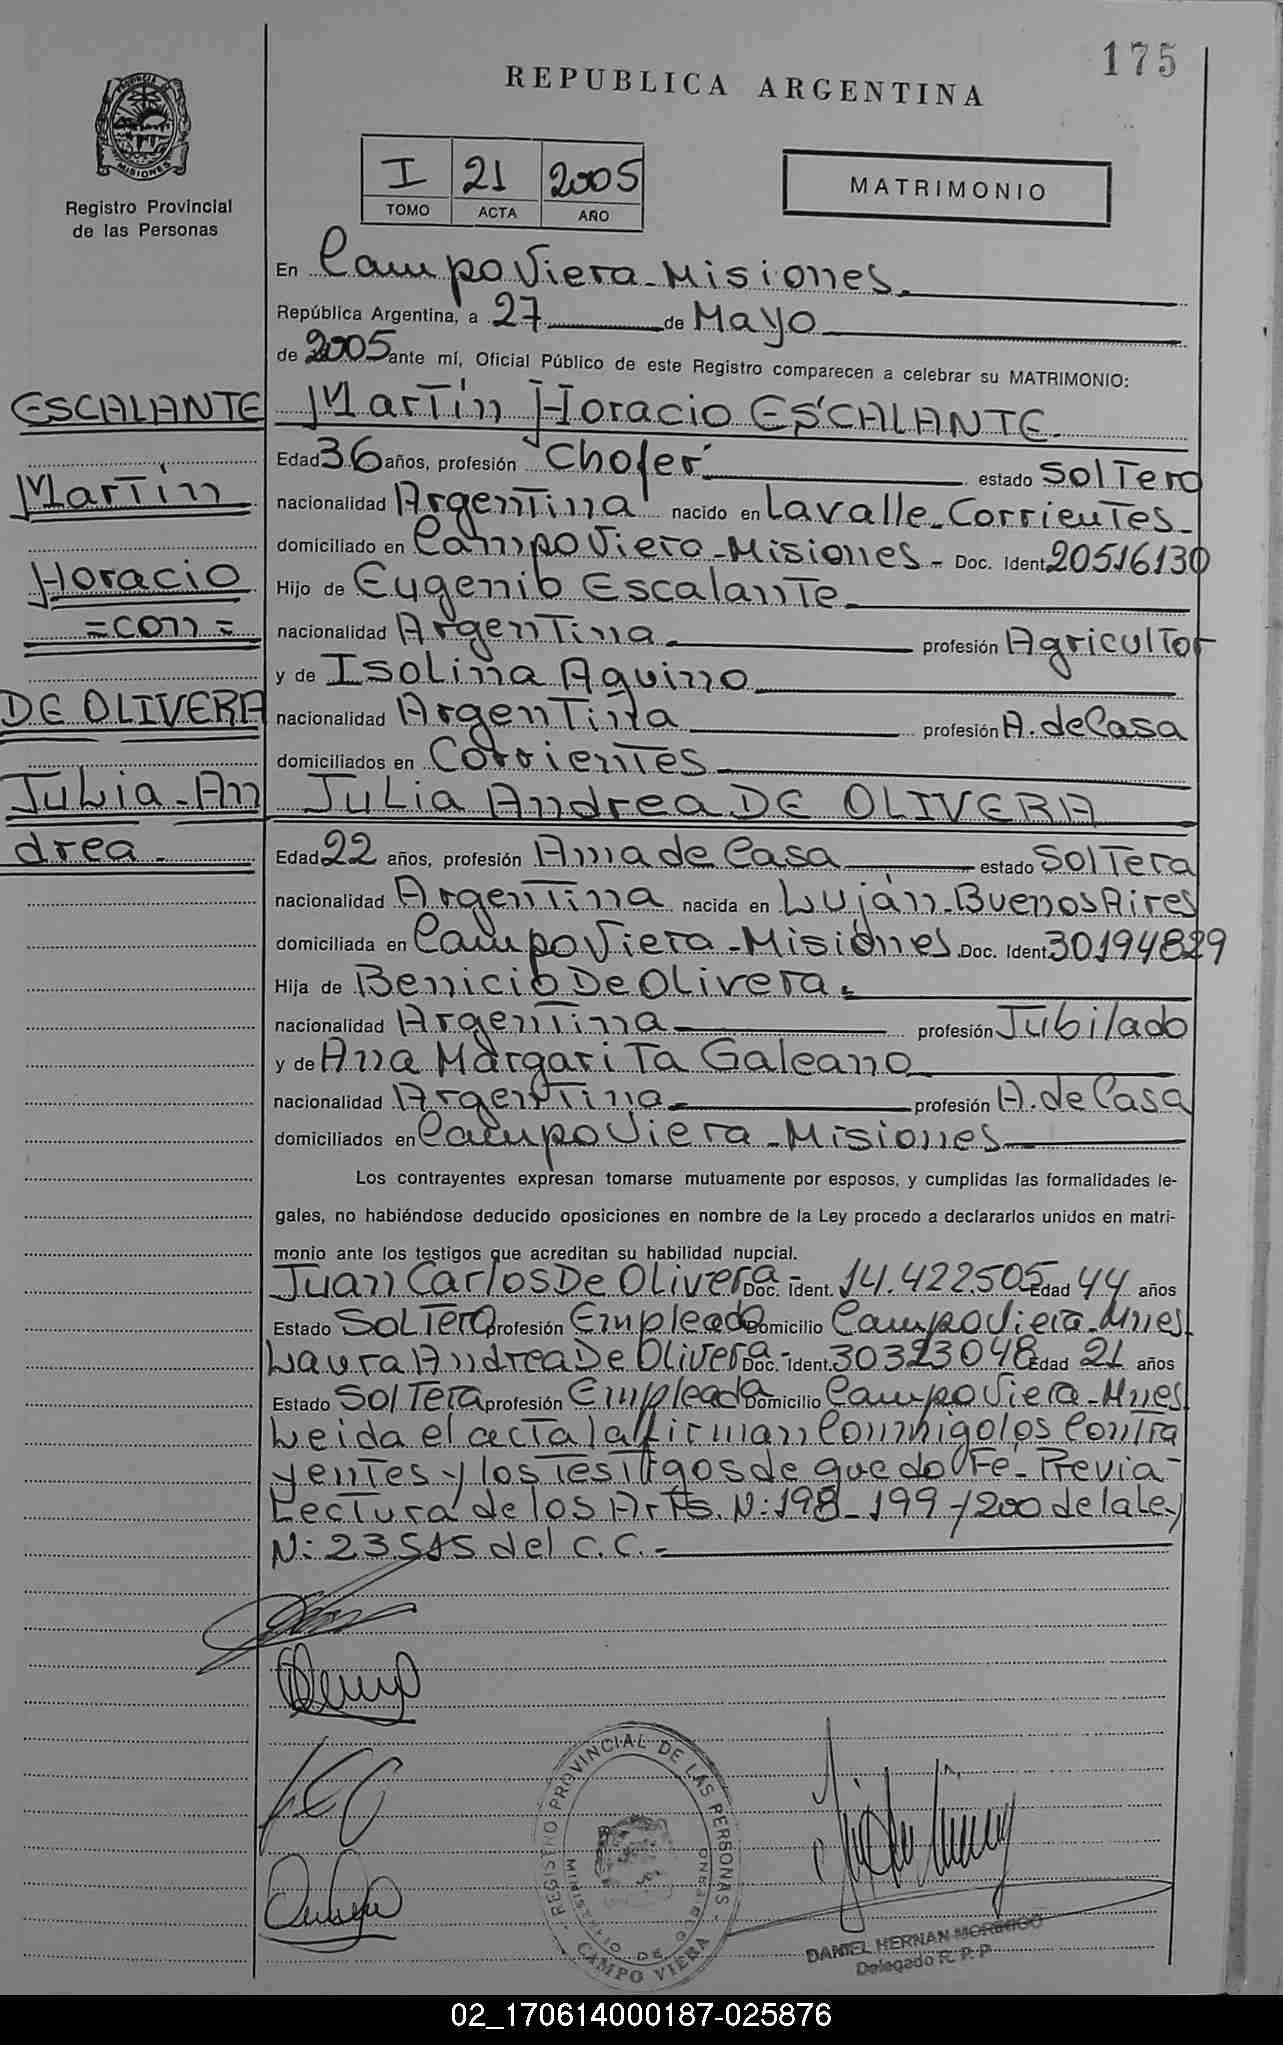 175
REPUBLICA ARGENTINA
PROVINCIA DE
MISIONES
Registro Provincial
de las Personas
I 21 2005
TOMO ACTA AÑO
MATRIMONIO
En Campo Viera - Misiones.
República Argentina, a 27 de Mayo
de 2005 ante mí, Oficial Público de este Registro comparecen a celebrar su MATRIMONIO:
ESCALANTE
Martín
Horacio
= con =
DE OLIVERA
Julia - An
drea.
Martín Horacio ESCALANTE.
Edad 36 años, profesión Chofer estado Soltero
nacionalidad Argentina nacido en Lavalle - Corrientes -
domiciliado en Campo Viera - Misiones - Doc. Ident. 20516130
Hijo de Eugenio Escalante
nacionalidad Argentina profesión Agricultor
y de Isolina Aquino
nacionalidad Argentina profesión A. de Casa
domiciliados en Corrientes
Julia Andrea DE OLIVERA
Edad 22 años, profesión Ama de Casa estado Soltera
nacionalidad Argentina nacida en Luján - Buenos Aires
domiciliada en Campo Viera - Misiones Doc. Ident. 30194829
Hija de Benicio De Olivera.
nacionalidad Argentina profesión Jubilado
y de Ana Margarita Galeano
nacionalidad Argentina profesión A. de Casa
domiciliados en Campo Viera - Misiones
Los contrayentes expresan tomarse mutuamente por esposos, y cumplidas las formalidades le-
gales, no habiéndose deducido oposiciones en nombre de la Ley procedo a declararlos unidos en matri-
monio ante los testigos que acreditan su habilidad nupcial.
Juan Carlos De Olivera - Doc. ident. 14.422.505 Edad 44 años
Estado Soltero profesión Empleado Domicilio Campo Viera - Mnes
Laura Andrea De Olivera - Doc. ident. 30323048 Edad 21 años
Estado Soltera profesión Empleada Domicilio Campo Viera - Mnes
Leida el acta la firman conmigo los contra
yentes y los testigos de que doy Fé - Previa -
Lectura de los Arts. N: 198 - 199 - /200 de la Ley
N: 23515 del C.C. -
REGISTRO PROVINCIAL DE LAS PERSONAS
MINISTERIO DE GOBIERNO
CAMPO VIERA
DANIEL HERNAN MORINIGO
Delegado R. P. P.
02_170614000187-025876